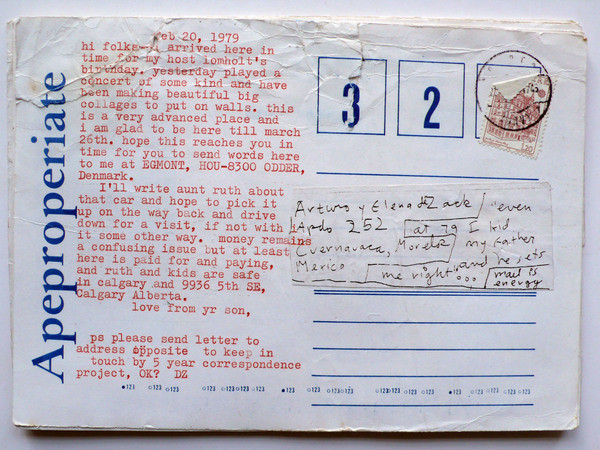 Apeproperiate
eb 20, 1979
hi folks- I arrived here in
time for my host lomholt's
birthday. yesterday played a
concert of some kind and have
been making beautiful big
collages to put on walls. this
is a very advanced place and
i am glad to be here till march
26th. hope this reaches you in
time for you to send words here
to me at EGMONT, HOU-8300 ODDER,
Denmark.
I'll write aunt ruth about
that car and hope to pick it
up on the way back and drive
down for a visit, if not with
it some other way. money remains
a confusing issue but at least
here is paid for and paying,
and ruth and kids are safe
in calgary and 9936 5th SE,
Calgary Alberta.
love from yr son,
ps please send letter to
address opposite to keep in
touch by 5 year correspondence
project, OK? DZ
123 123 123 123 123 123 123 123 123 123 123 123 123
3 2
Arturo y Elena Zack
Apdo 252
Cuernavaca, Morelos
Mexico
even
at 79 I kid
my father
and he sets
me right!
mail is
energy